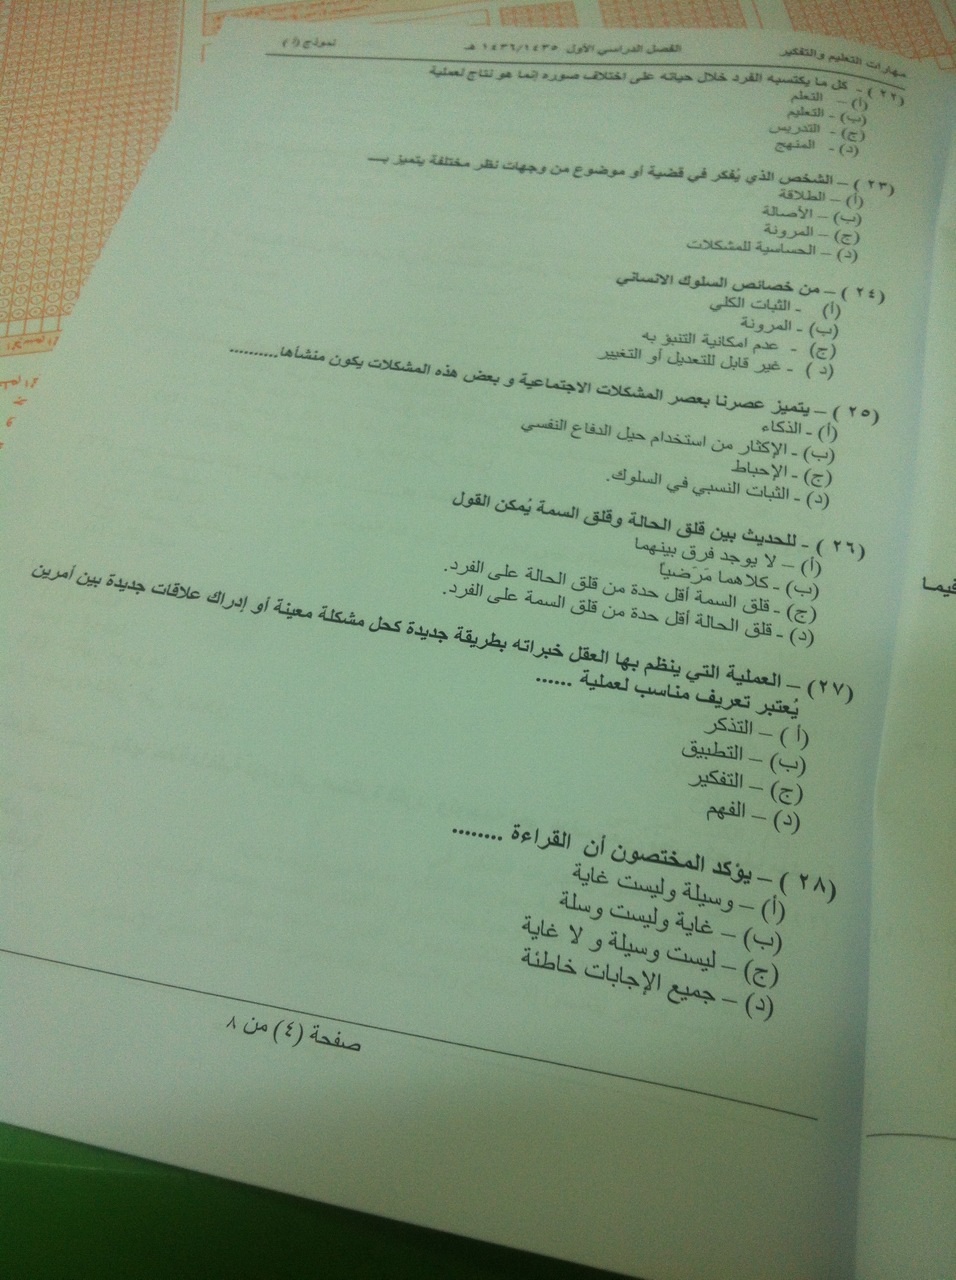 مهارات التعليم والتفكير الفصل الدراسي الأول ١٤٣٦/١٤٣٥ هـ نموذج (أ)
(٢٢) - كل ما يكتسبه الفرد خلال حياته على اختلاف صوره إنما هو نتاج لعملية
(أ) – التعلم
(ب) - التعليم
(ج) - التدريس
(د) - المنهج
(٢٣) – الشخص الذي يُفكر في قضية أو موضوع من وجهات نظر مختلفة يتميز بــ
(أ) – الطلاقة
(ب) – الأصالة
(ج) – المرونة
(د) – الحساسية للمشكلات
(٢٤) – من خصائص السلوك الانساني
(أ) - الثبات الكلي
(ب) - المرونة
(ج) - عدم امكانية التنبؤ به
(د) - غير قابل للتعديل أو التغيير
(٢٥) – يتميز عصرنا بعصر المشكلات الاجتماعية و بعض هذه المشكلات يكون منشأها..........
(أ) - الذكاء
(ب) - الإكثار من استخدام حيل الدفاع النفسي
(ج) - الإحباط
(د) - الثبات النسبي في السلوك.
(٢٦) - للحديث بين قلق الحالة وقلق السمة يُمكن القول
(أ) – لا يوجد فرق بينهما
(ب) - كلاهما مَرَضياً
(ج) - قلق السمة أقل حدة من قلق الحالة على الفرد.
(د) - قلق الحالة أقل حدة من قلق السمة على الفرد.
(٢٧) – العملية التي ينظم بها العقل خبراته بطريقة جديدة كحل مشكلة معينة أو إدراك علاقات جديدة بين أمرين
يُعتبر تعريف مناسب لعملية ......
(أ) – التذكر
(ب) – التطبيق
(ج) – التفكير
(د) – الفهم
(٢٨) – يؤكد المختصون أن القراءة ........
(أ) – وسيلة وليست غاية
(ب) – غاية وليست وسلة
(ج) – ليست وسيلة و لا غاية
(د) – جميع الإجابات خاطئة
صفحة (٤) من ٨
فيما